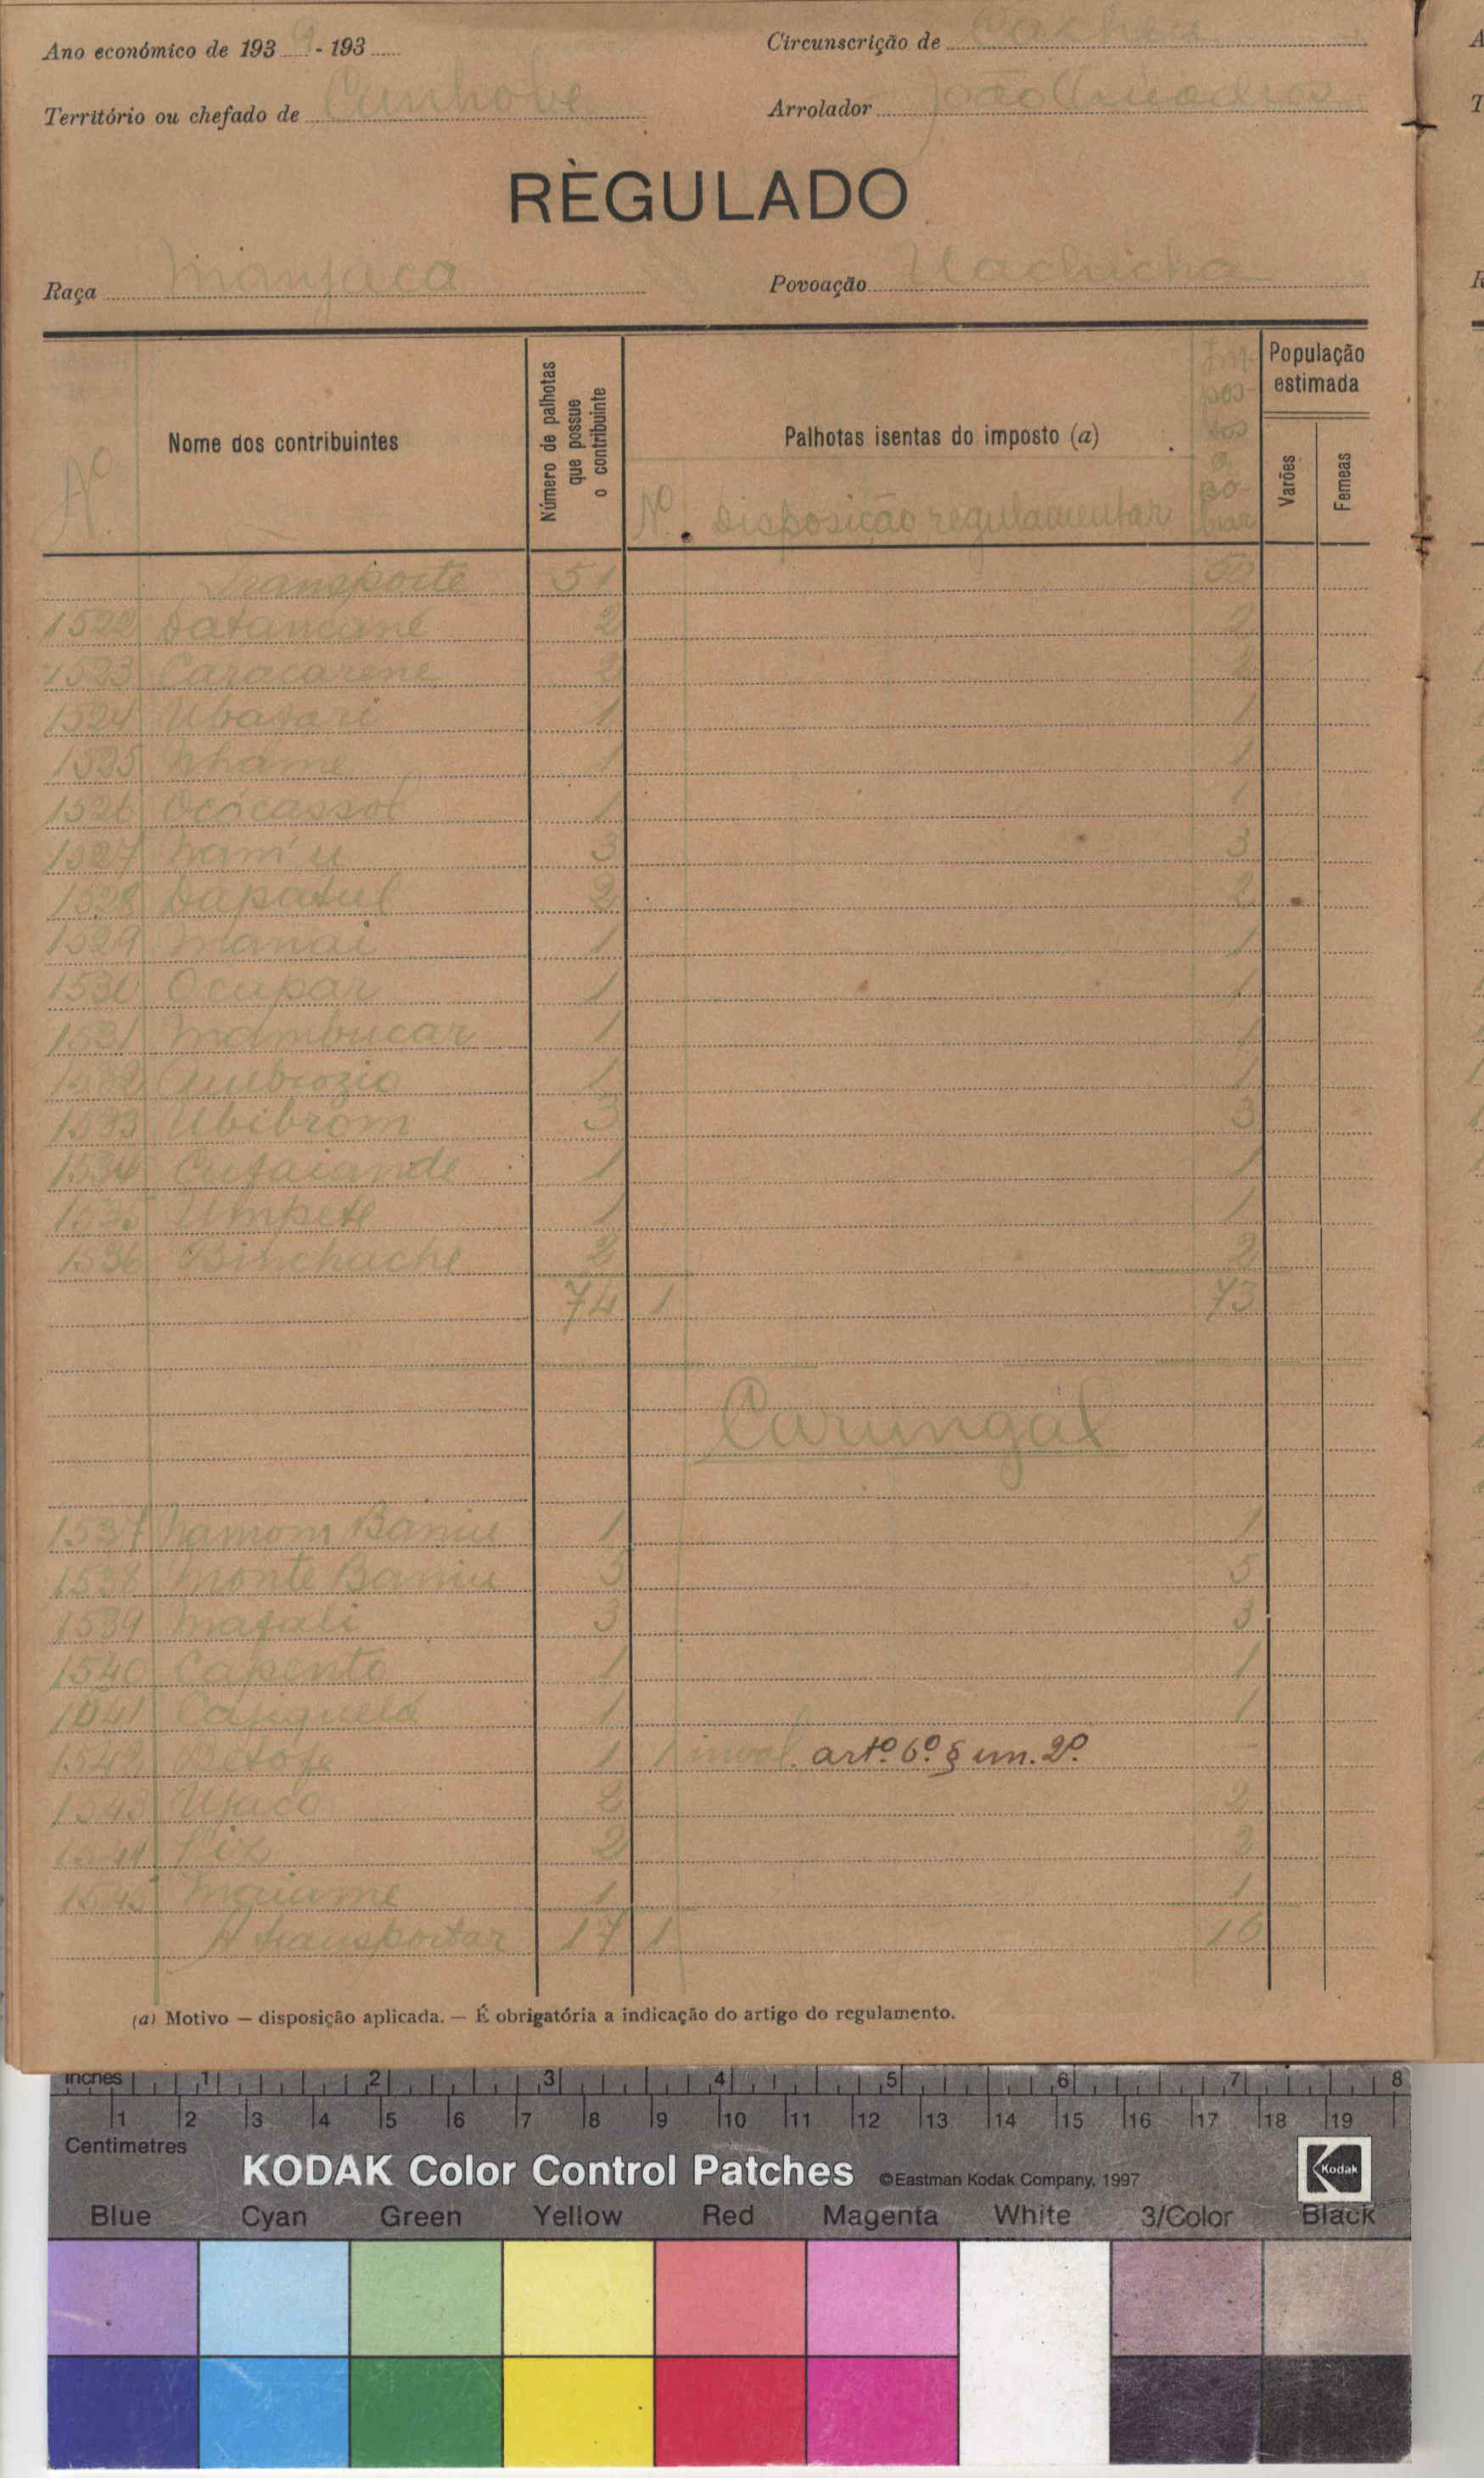 Ano económico de 193 9 - 193
Circunscrição de Cacheu
Território ou chefado de Canhobe
Arrolador João
RÈGULADO
Raça Manjaca
Povoação
Nº
Nome dos contribuintes
Número de palhotas que possue o contribuinte
Palhotas isentas do imposto (a)
Nº. Disposição regulamentar
Impostos a cobrar
População estimada
Varões
Femeas
Transporte 51
1522 Datancane 2 2
1523 Caracarene 2 2
1524 1 1
1525 Nhame 1 1
1526 Ocócassol 1 1
1527 Nam'u 3 3
1528 2 2
1529 Manai 1 1
1530 Ocupar 1 1
1531 Mambucar 1 1
1532 Ambrozio 1 1
1533 Ubibrom 3 3
1534 1 1
1535 Umpete 1 1
1536 Binchache 2 2
74 1 73
Carungal
1537 Namom Baniu 1 1
1538 Monte Baniu 5 5
1539 Mafali 3 3
1540 Capento 1 1
1541 1 1
1542 1 1 inval. artº. 6º. § un. 2º. -
1543 Ujaco 2 2
1544 2 2
1545 Maiame 1 1
A transportar 17 1 16
(a) Motivo — disposição aplicada. — É obrigatória a indicação do artigo do regulamento.
inches 1 2 3 4 5 6 7 8
1 2 3 4 5 6 7 8 9 10 11 12 13 14 15 16 17 18 19
Centimetres
KODAK Color Control Patches ©Eastman Kodak Company, 1997 Kodak
Blue Cyan Green Yellow Red Magenta White 3/Color Black